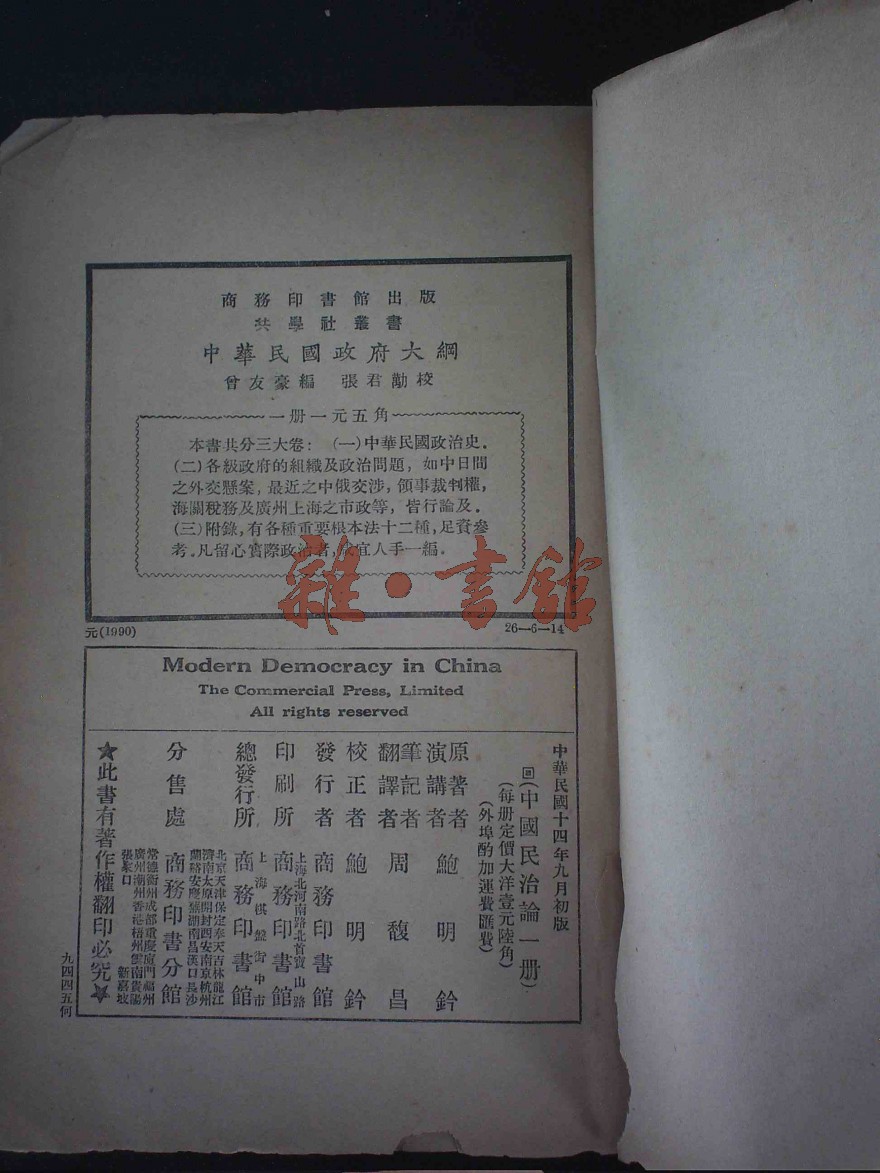 商務印書館出版
共學社叢書
中華民國政府大綱
曾友豪編 張君勱校
一册一元五角
本書共分三大卷：(一)中華民國政治史．
(二)各級政府的組織及政治問題，如中日間
之外交懸案，最近之中俄交涉，領事裁判權，
海關稅務及廣州上海之市政等，皆行論及．
(三)附錄，有各種重要根本法十二種，足資參
考．凡留心實際政治者，宜人手一編．
元(1990)
26—6—14
雜·書館
Modern Democracy in China
The Commercial Press, Limited
All rights reserved
中華民國十四年九月初版
回(中國民治論一册)
(每册定價大洋壹元陸角)
(外埠酌加運費匯費)
原著者
演講者 鮑明鈐
筆記者
翻譯者 周馥昌
校正者 鮑明鈐
發行者 商務印書館
上海北河南路北首寶山路
印刷所 商務印書館
上海棋盤街中市
總發行所 商務印書館
北京天津保定奉天吉林龍江
濟南太原開封西安南京杭州
蘭谿安慶蕪湖南昌漢口長沙
分售處 商務印書分館
常德衡州成都重慶廈門福州
廣州潮州香港梧州雲南貴陽
張家口 新嘉坡
★此書有著作權翻印必究★
九四四五何